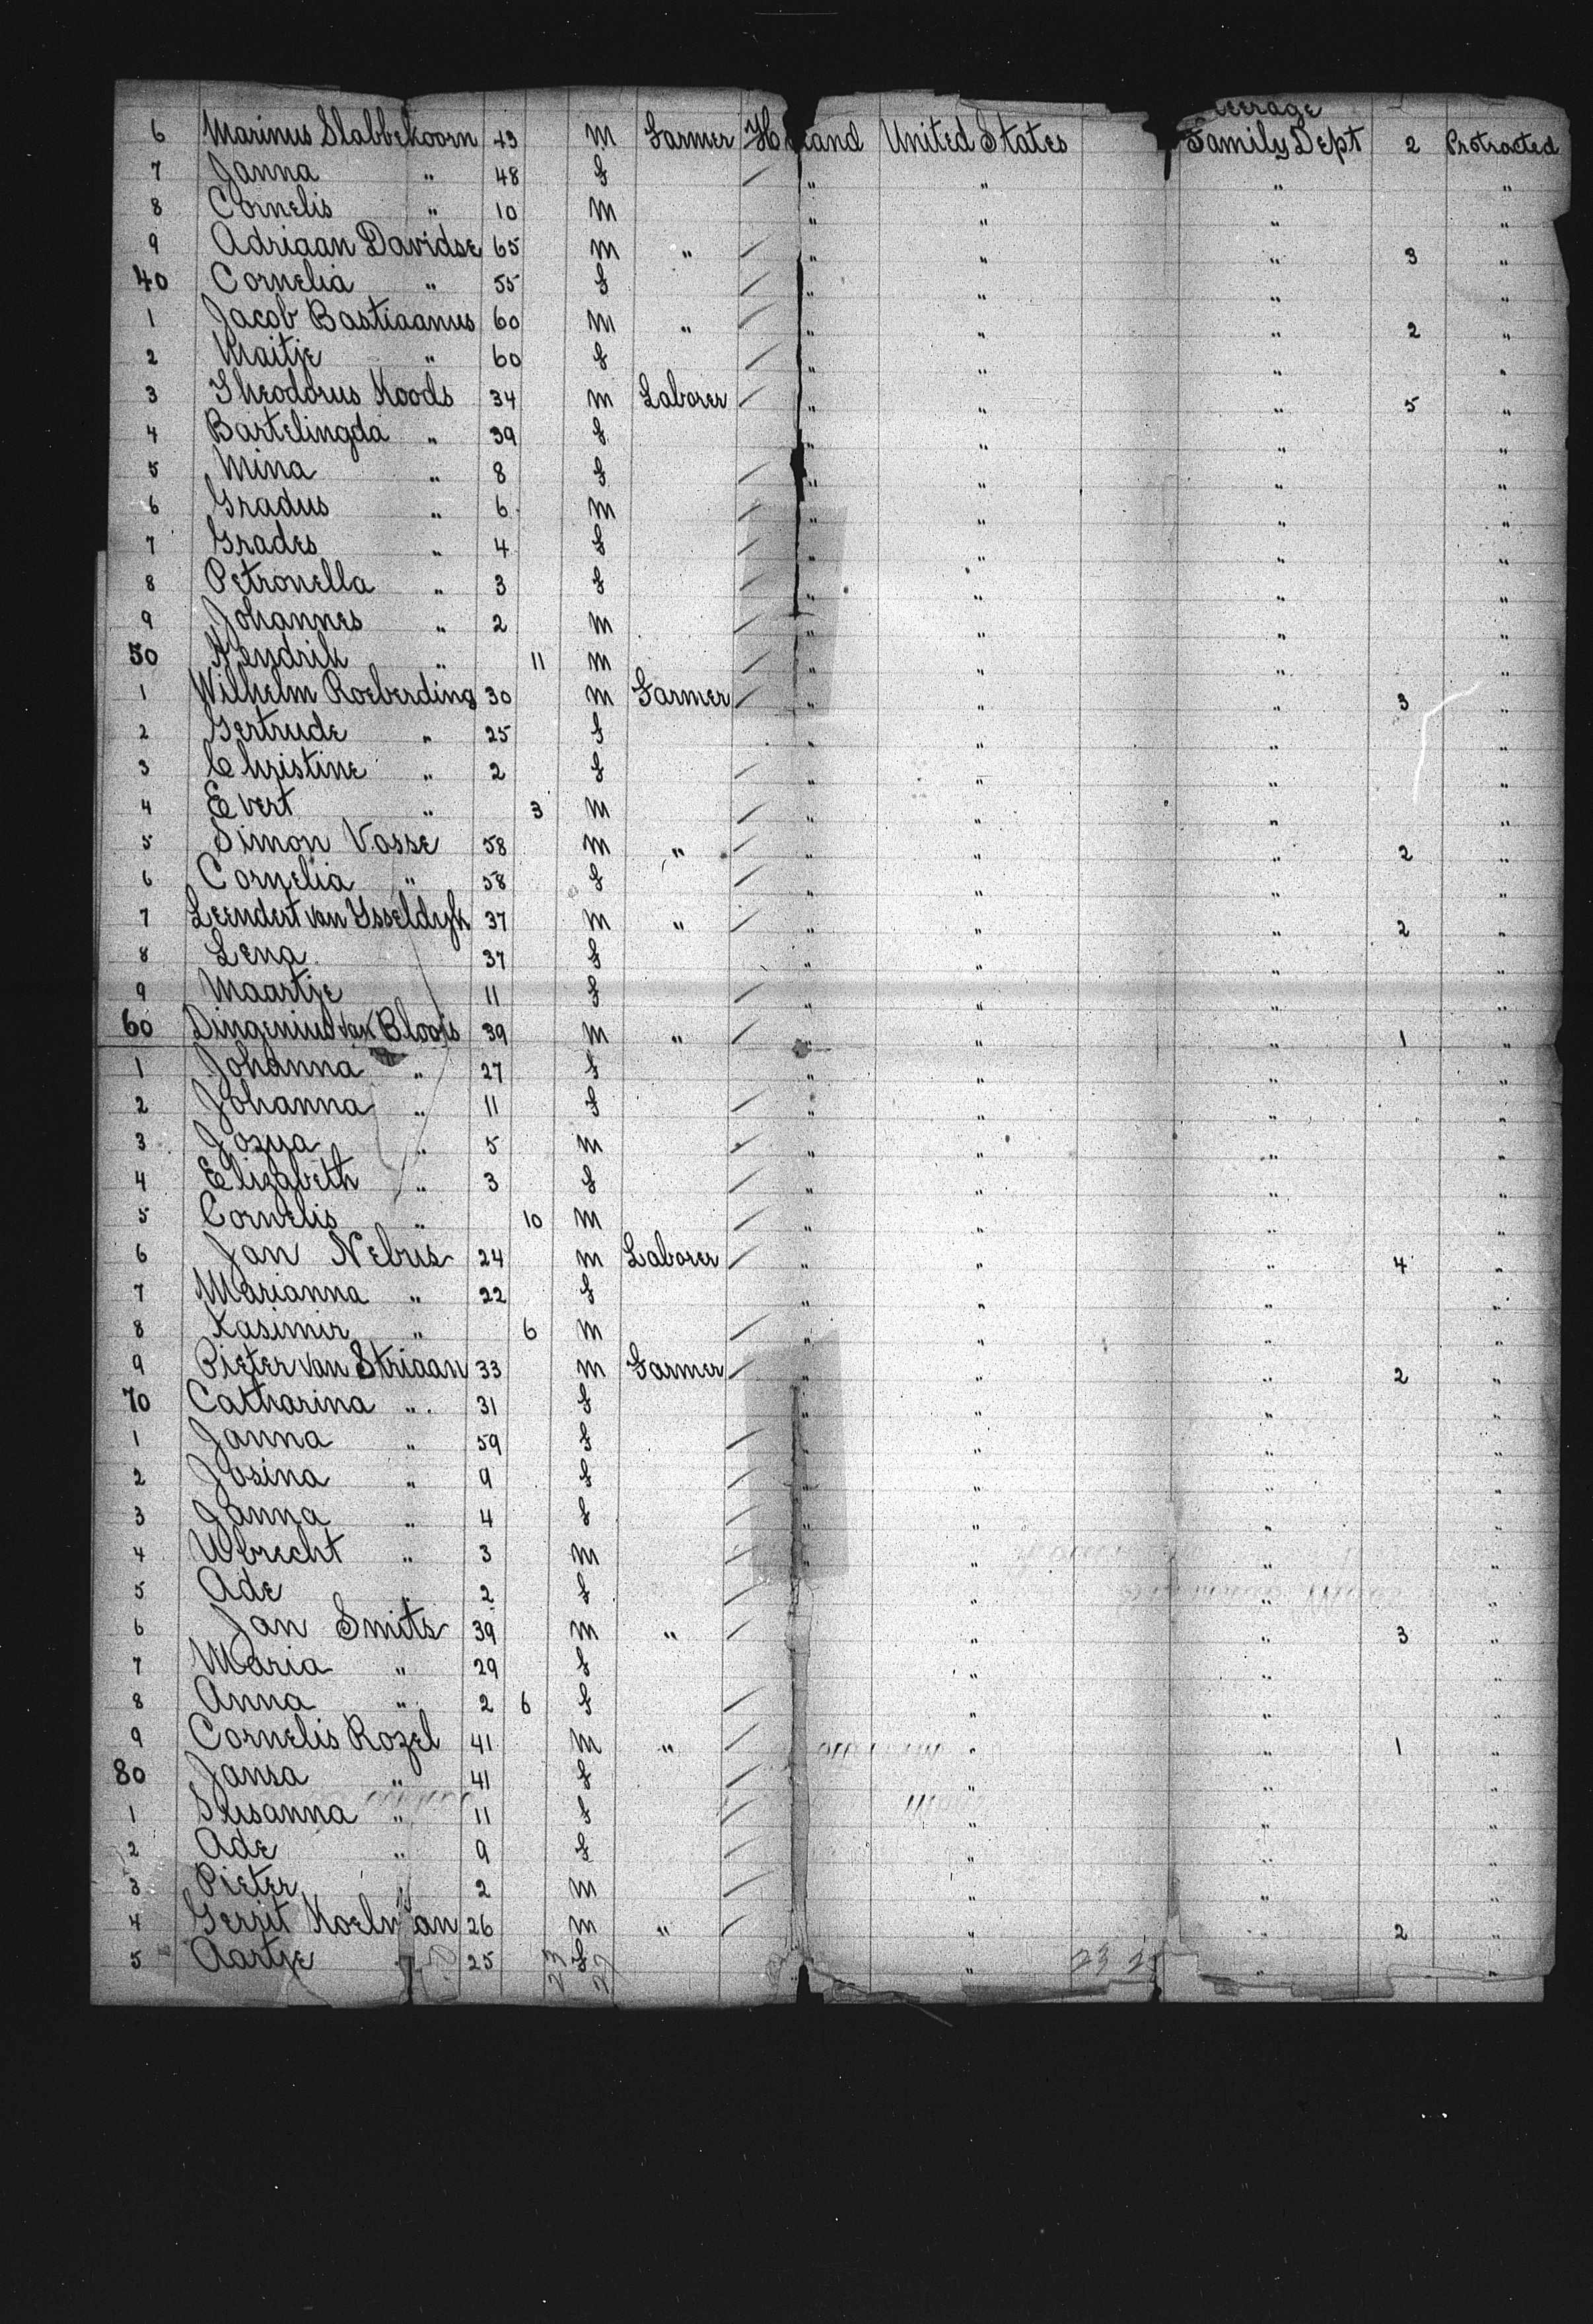 eerage
6 Marinus Slabbekoorn 43 M Farmer H land United States Family Dept 2 Protracted
7 Janna " 48 F " " " "
8 Cornelis " 10 M " " " "
9 Adriaan Davidse 65 M " " " " 3 "
40 Cornelia " 55 F " " " "
1 Jacob Bastiaanus 60 M " " " " 2 "
2 Maitje " 60 F " " " "
3 Theodorus Koods 34 M Laborer " " " 5 "
4 Bartelingda " 39 F " " " "
5 Mina " 8 F " " " "
6 Gradus " 6 M " " " "
7 Grades " 4 F " " " "
8 Petronella " 3 F " " " "
9 Johannes " 2 M " " " "
50 Hendrik " 11 M " " " "
1 Wilhelm Roeberding 30 M Farmer " " " 3 "
2 Gertrude " 25 F " " " "
3 Christine " 2 F " " " "
4 Evert " 3 M " " " "
5 Simon Vasse 58 M " " " " 2 "
6 Cornelia " 58 F " " " "
7 Leendert van Ysseldyk 37 M " " " " 2 "
8 Lena 37 F " " " "
9 Maartje 11 F " " " "
60 Dingenius van Bloois 39 M " " " " 1 "
1 Johanna " 27 F " " " "
2 Johanna " 11 F " " " "
3 Jozya " 5 M " " " "
4 Elizabeth " 3 F " " " "
5 Cornelis " 10 M " " " "
6 Jan Nebus 24 M Laborer " " " 4 "
7 Marianna " 22 F " " " "
8 Kasimir " 6 M " " " "
9 Pieter van Striaan 33 M Farmer " " " 2 "
70 Catharina " 31 F " " " "
1 Janna " 59 F " " " "
2 Josina " 9 F " " " "
3 Janna " 4 F " " " "
4 Ubrecht " 3 M " " " "
5 Ade " 2 F " " "
6 Jan Smits 39 M " " " 3 "
7 Maria " 29 F " " "
8 Anna " 2 6 F " " "
9 Cornelis Rozel 41 M " " " 1 "
80 Jansa " 41 F " " "
1 Susanna " 11 F " " "
2 Ade " 9 F " " "
3 Pieter " 2 M " " "
4 Gerrit Koelman 26 M " " " 2 "
5 Aartje 25 F " " "